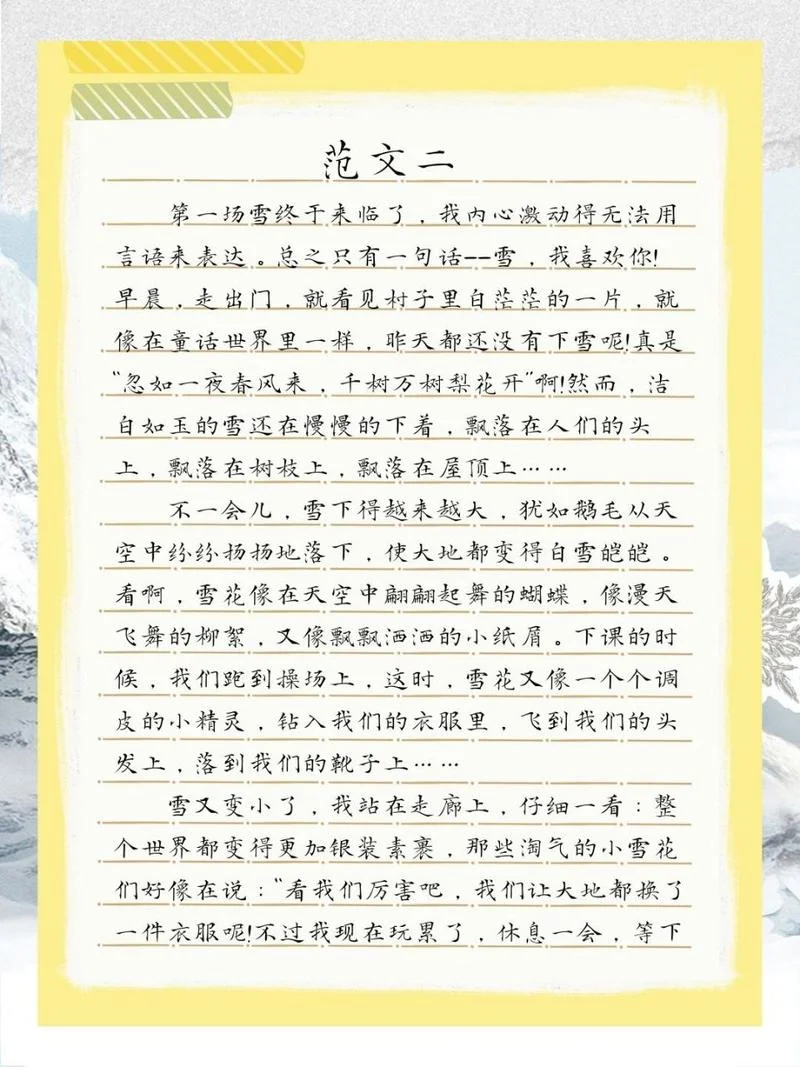 范文二
第一场雪终于来临了，我内心激动得无法用
言语来表达。总之只有一句话--雪，我喜欢你!
早晨，走出门，就看见村子里白茫茫的一片，就
像在童话世界里一样，昨天都还没有下雪呢!真是
“忽如一夜春风来，千树万树梨花开”啊!然而，洁
白如玉的雪还在慢慢的下着，飘落在人们的头
上，飘落在树枝上，飘落在屋顶上……
不一会儿，雪下得越来越大，犹如鹅毛从天
空中纷纷扬扬地落下，使大地都变得白雪皑皑。
看啊，雪花像在天空中翩翩起舞的蝴蝶，像漫天
飞舞的柳絮，又像飘飘洒洒的小纸屑。下课的时
候，我们跑到操场上，这时，雪花又像一个个调
皮的小精灵，钻入我们的衣服里，飞到我们的头
发上，落到我们的靴子上……
雪又变小了，我站在走廊上，仔细一看：整
个世界都变得更加银装素裹，那些淘气的小雪花
们好像在说：“看我们厉害吧，我们让大地都换了
一件衣服呢!不过我现在玩累了，休息一会，等下